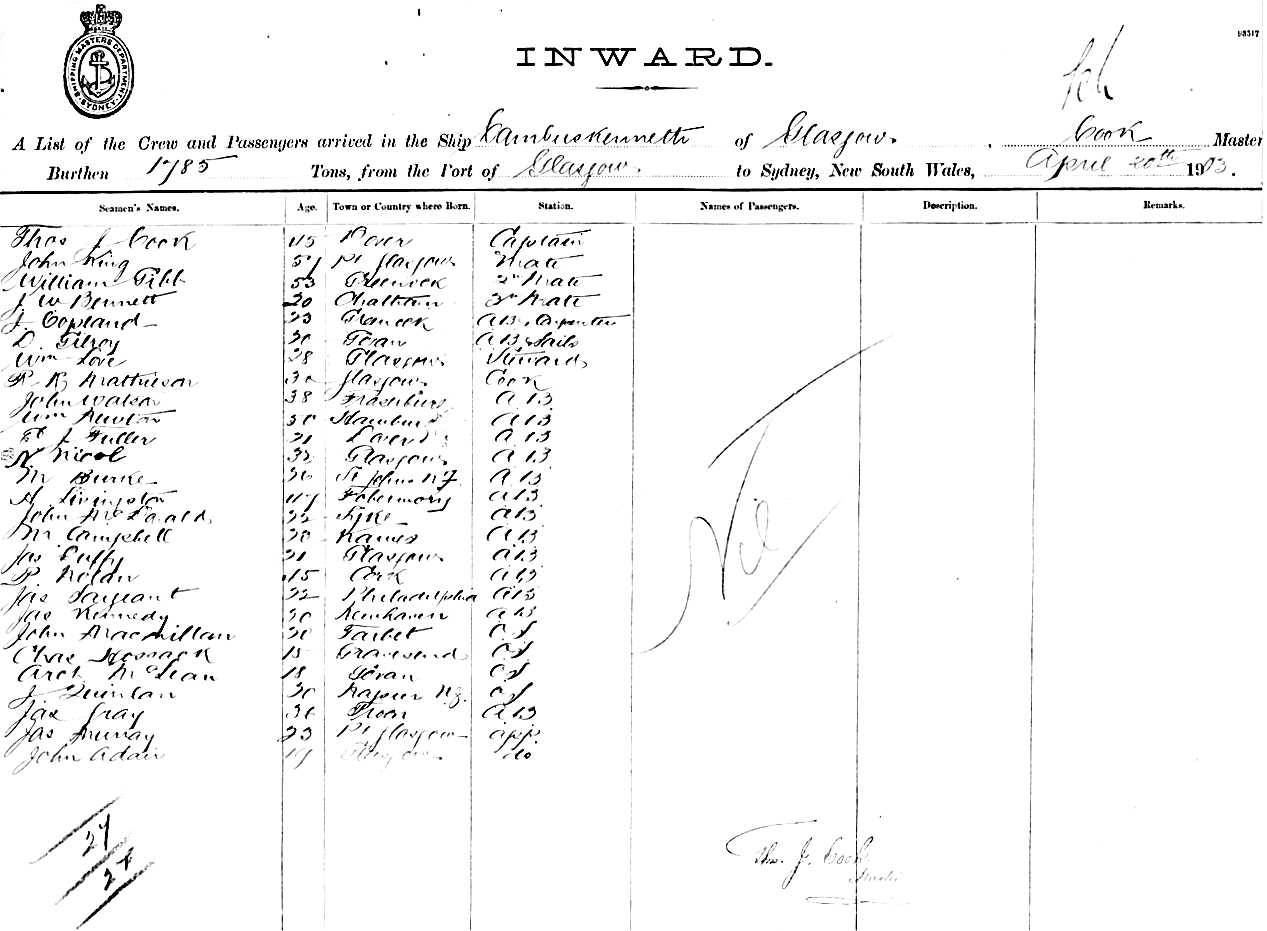 93517
INWARD.
SHIPPING MASTERS DEPARTMENT SYDNEY
A List of the Crew and Passengers arrived in the Ship Cambuskenneth of Glasgow. Cook Master
Burthen 1785 Tons, from the Port of Glasgow. to Sydney, New South Wales, April 20th 1903.
Seamen's Names. Age. Town or Country where Born. Station. Names of Passengers. Description. Remarks.
Thos J Cook 45 Dover Captain
John King 51 Pt Glasgow Mate
William Gibb 53 Greenock 2nd Mate
J W Bennett 20 Chatham Mate
J. Copland 23 AB & Carpenter
D. Gilroy Govan AB & Sails
Wm Love 28 Glasgow Steward
Mathieson Glasgow Cook
John Watson 38 AB
Wm Newton 50 Hamburg AB
J Fuller 21 AB
N Nicol 32 Glasgow AB
M Burke 26 St Johns N.F. AB
A Livingston 47 Tobermory AB
John McDonald 22 AB
M Campbell 28 Kames AB
Jas Duffy 21 Glasgow AB
P Nolan 45 Cork AB
Jas Sargeant 22 Philadelphia AB
Jas Kennedy 20 Newhaven AB
John Macmillan 20 Tarbet OS
Chas Hossack 18 Gravesend OS
Arch McLean 18 Govan OS
J. Quinlan 20 Napier N.Z. OS
Jas Gray 36 Troon AB
Jas Murray 23 Pt Glasgow app
John Adair 19 Glasgow do
Nil
27
27
Thos. J. Cook
Master